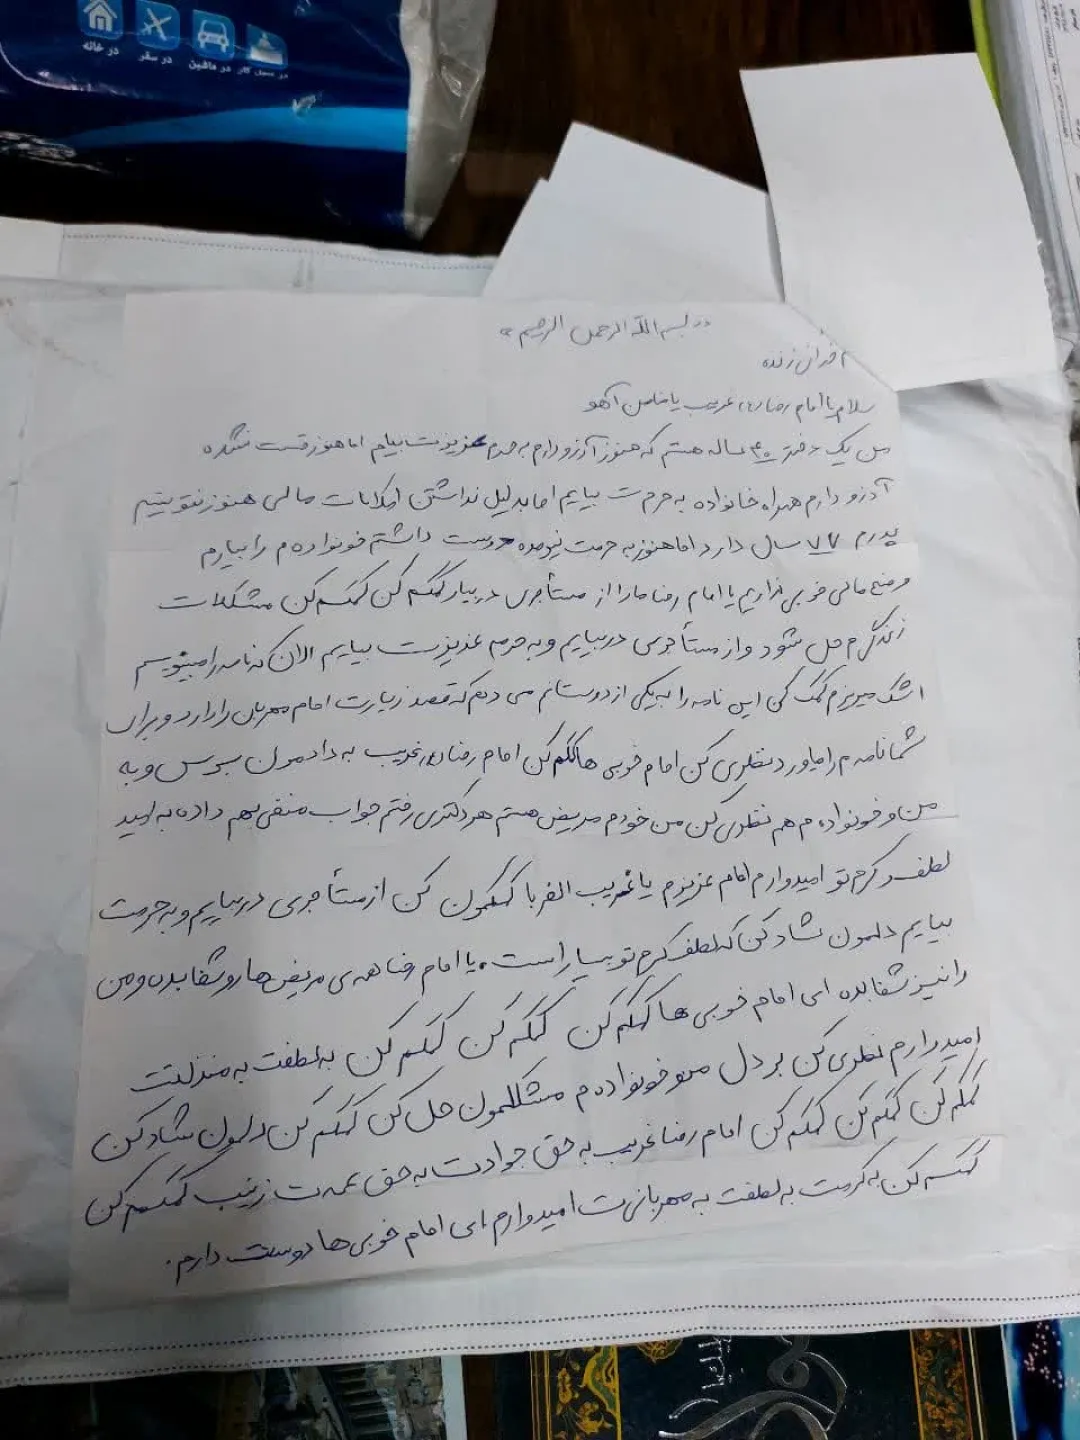 در خانه
در سفر
در ماشین
در محل کار
«بسم الله الرحمن الرحیم»
سلام یا امام رضا غریب یا ضامن آهو
من یک دختر ۳۰ ساله هستم که هنوز آرزو دارم به حرم عزیزت بیایم اما هنوز قسمت نشده
آرزو دارم همراه خانواده به حرمت بیایم اما به دلیل نداشتن امکانات مالی هنوز نتونستیم
پدرم ۷۷ سال دارد اما هنوز به حرمت نیومده دوست داشتم خونواده م را بیارم
وضع مالی خوبی نداریم یا امام رضا ما را از مستأجری دربیار کمکم کن کمکم کن مشکلات
زندگی م حل شود و از مستأجری دربیایم و به حرمه عزیزت بیایم الان که نامه را مینویسم
اشک میریزم کمک کن این نامه را به یکی از دوستانم می دهم که قصد زیارت امام مهربان را دارد و برای
شما نامه م را میاورد نظری کن امام خوبی ها کمکم کن امام رضا غریب به دادمون برس و به
من و خونواده م هم نظری کن من خودم مریض هستم هر دکتری رفتم جواب منفی بهم داده به امید
لطف و کرم تو امیدوارم امام عزیزم یا غریب الغربا کمکمون کن از مستأجری دربیایم و به حرمت
بیایم دلمون شاد کن که لطف کرم تو بسیار است، یا امام رضا همه ی مریض ها رو شفا بده و من
را نیز شفا بده ای امام خوبی ها کمکم کن کمکم کن کمکم کن به لطفت به منزلتت
امیدوارم نظری کن بر دل منو خونواده م مشکلمون حل کن کمکم کن دلمون شاد کن
کمکم کن کمکم کن کمکم کن امام رضا غریب به حق جوادت به حق عمه ت زینب کمکم کن
کمکم کن به کرمت به لطفت به مهربانی ت امیدوارم ای امام خوبی ها دوستت دارم.